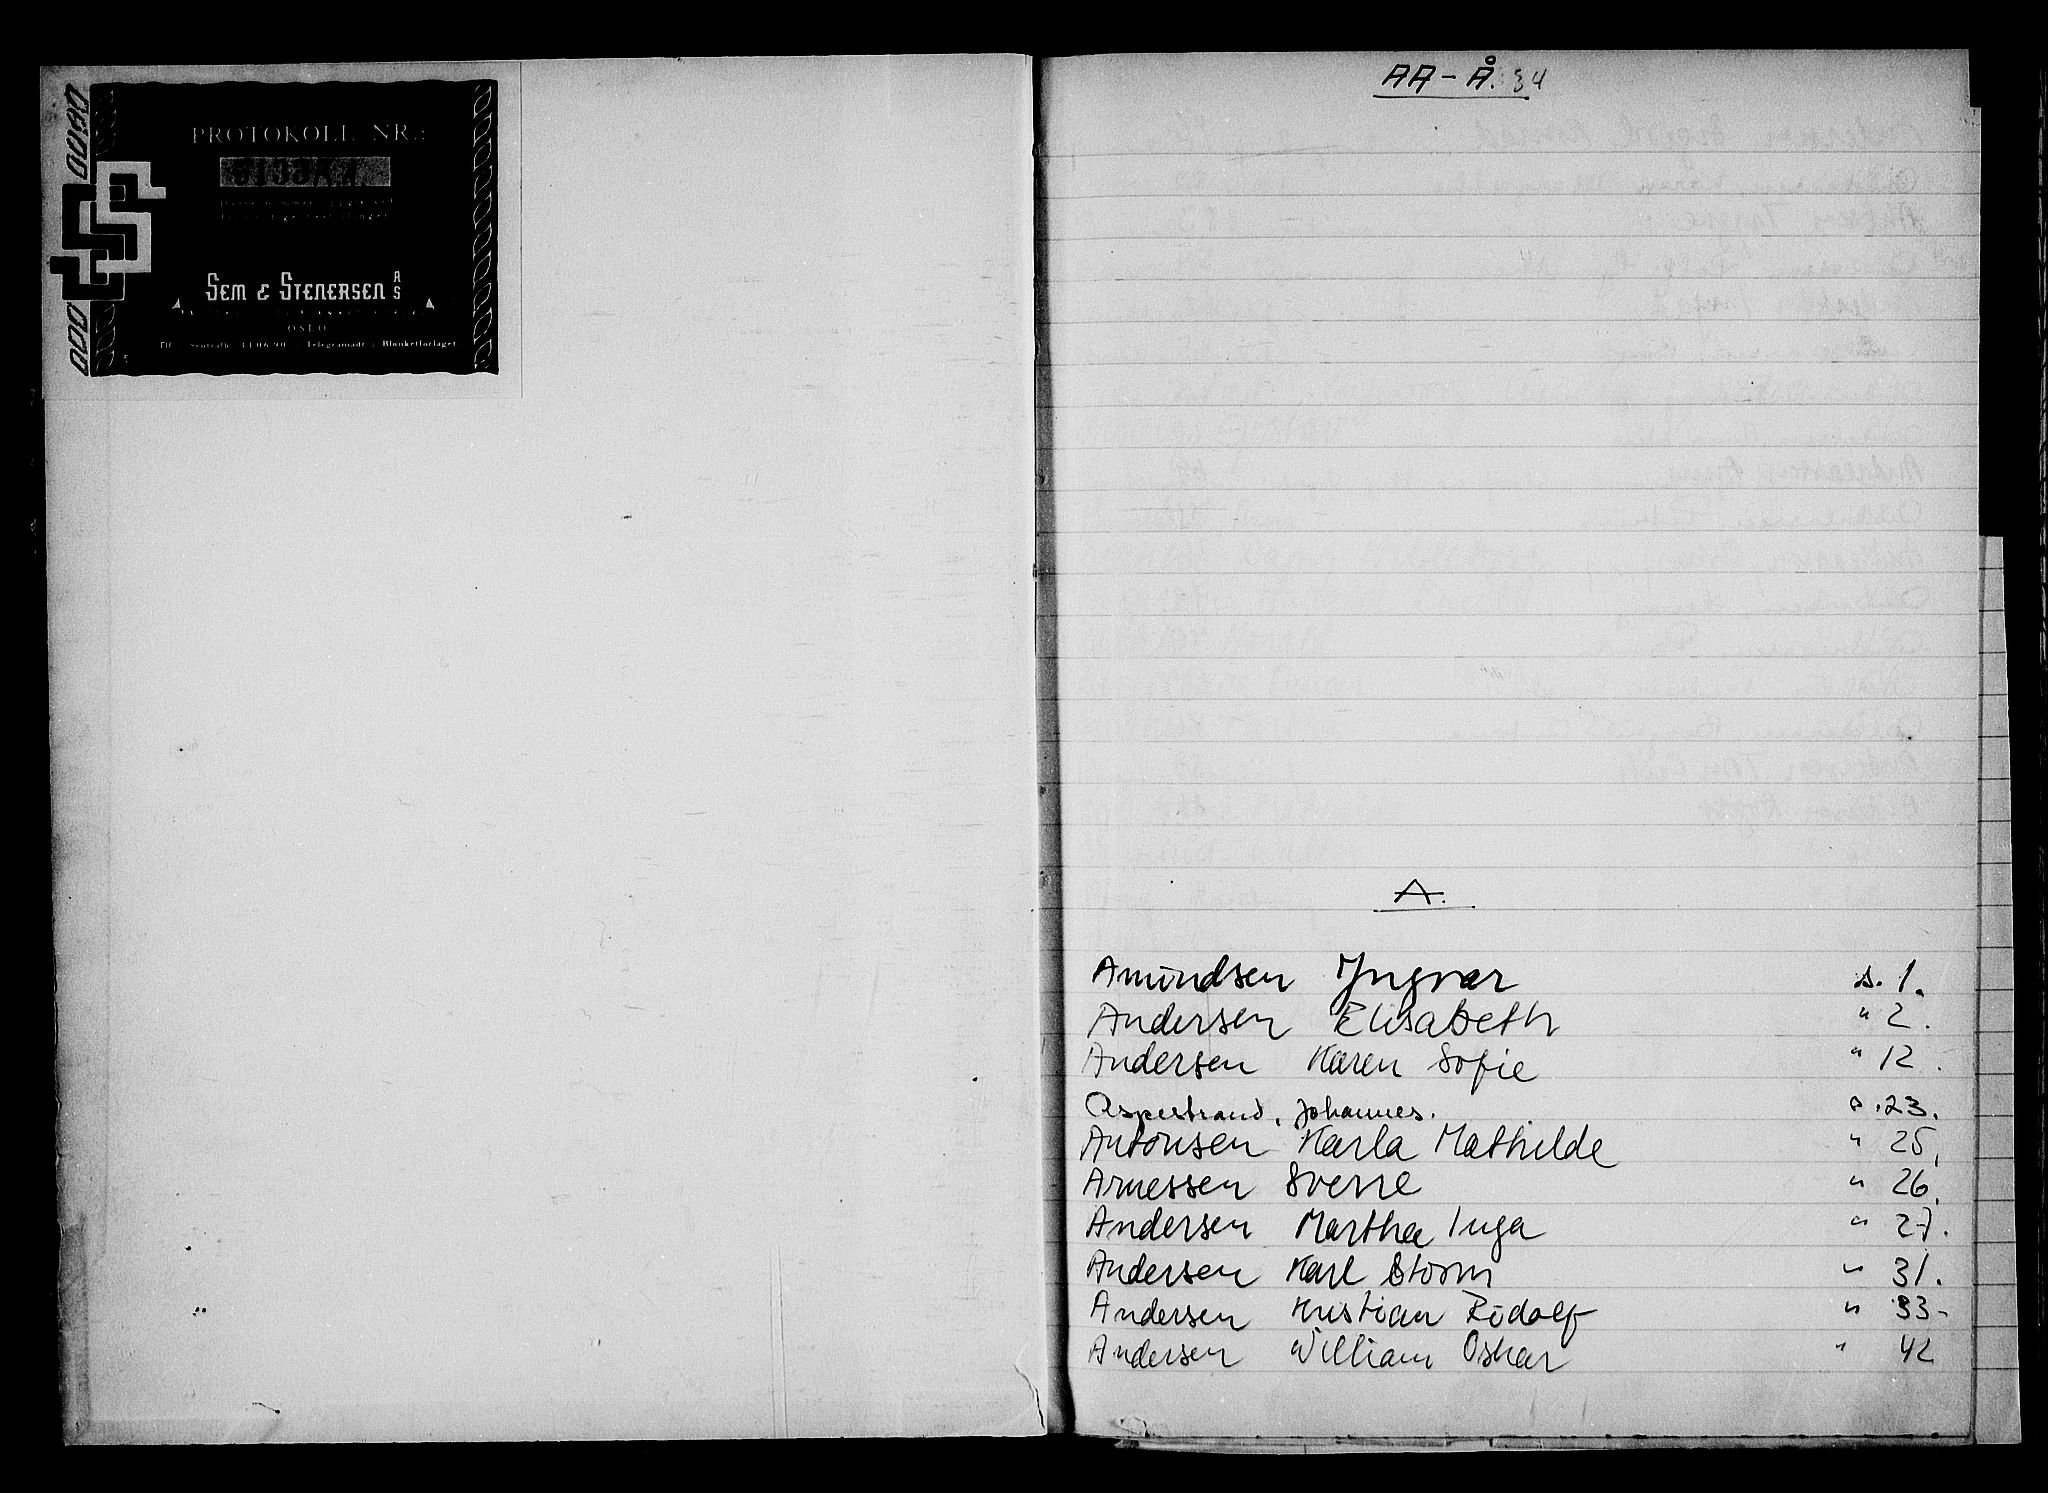 PROTOKOLL NR.:
SEM & STENERSEN A/S
OSLO
Tlf. Sentralb. 41 06 90 - Telegramadr.: Blankettforlaget
AA - Å. 34
A.
Amundsen Yngvar s. 1.
Andersen Elisabeth " 2.
Andersen Karen Sofie " 12.
Asperstrand, Johannes. s. 23.
Antonsen Karla Mathilde " 25.
Arnessen Sverre " 26.
Andersen Martha Inga " 27.
Andersen Karl Storm " 31.
Andersen Kristian Rudolf " 33-
Andersen William Oskar " 42